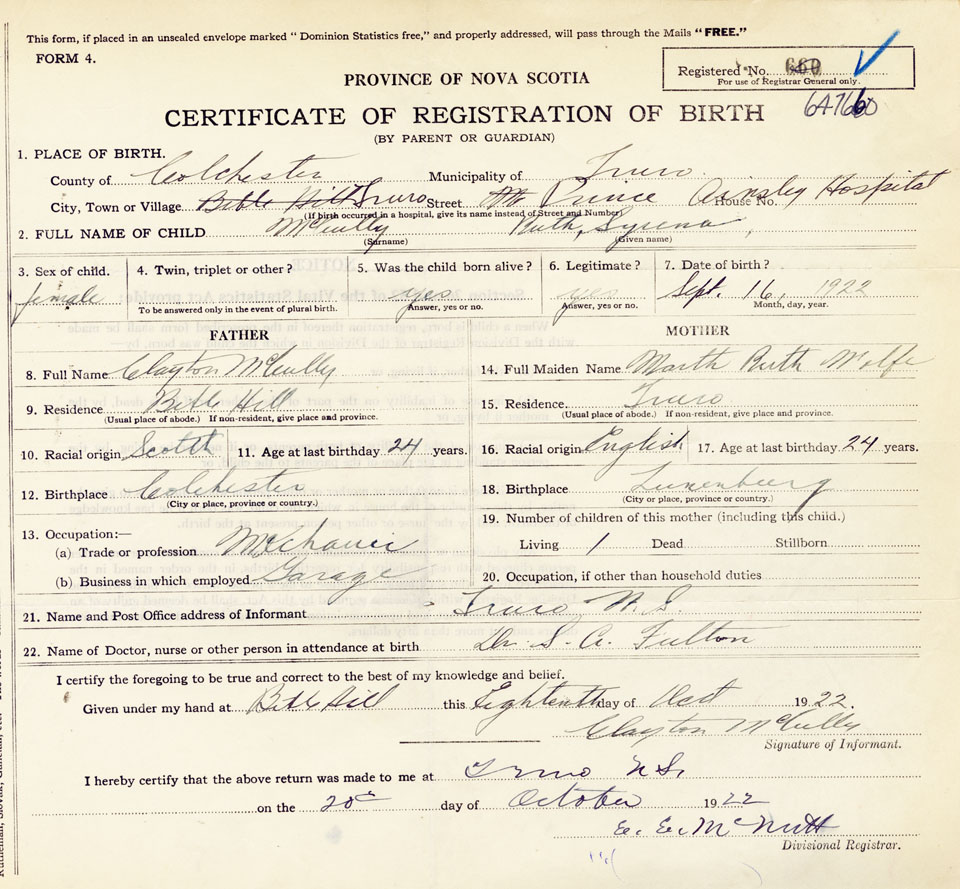 This form, if placed in an unsealed envelope marked "Dominion Statistics free," and properly addressed, will pass through the Mails "FREE."
FORM 4.
Registered No. 660
For use of Registrar General only.
PROVINCE OF NOVA SCOTIA
647660
CERTIFICATE OF REGISTRATION OF BIRTH
(BY PARENT OR GUARDIAN)
1. PLACE OF BIRTH.
County of Colchester Municipality of Truro
City, Town or Village Bible Hill Truro Street Prince House No. Ainsley Hospital
(If birth occurred in a hospital, give its name instead of Street and Number)
2. FULL NAME OF CHILD McCully Ruth, Syrena,
(Surname) (Given name)
3. Sex of child. 4. Twin, triplet or other? 5. Was the child born alive? 6. Legitimate? 7. Date of birth?
female yes yes Sept. 16, 1922
To be answered only in the event of plural birth. Answer, yes or no. Answer, yes or no. Month, day, year.
FATHER MOTHER
8. Full Name Clayton McCully 14. Full Maiden Name Marth Ruth Wolfe
9. Residence Bible Hill 15. Residence Truro
(Usual place of abode.) If non-resident, give place and province. (Usual place of abode.) If non-resident, give place and province.
10. Racial origin Scotch 11. Age at last birthday 24 years. 16. Racial origin English 17. Age at last birthday 24 years.
12. Birthplace Colchester 18. Birthplace Lunenburg
(City or place, province or country.) (City or place, province or country.)
13. Occupation:— 19. Number of children of this mother (including this child.)
(a) Trade or profession Mechanic Living 1 Dead Stillborn
(b) Business in which employed Garage 20. Occupation, if other than household duties
21. Name and Post Office address of Informant Truro N.S.
22. Name of Doctor, nurse or other person in attendance at birth Dr. S. A. Fulton
I certify the foregoing to be true and correct to the best of my knowledge and belief.
Given under my hand at Bible Hill this Eighteenth day of Oct 1922.
Clayton McCully
Signature of Informant.
I hereby certify that the above return was made to me at Truro N.S.
on the 20 day of October 1922
E. E. McNutt
Divisional Registrar.